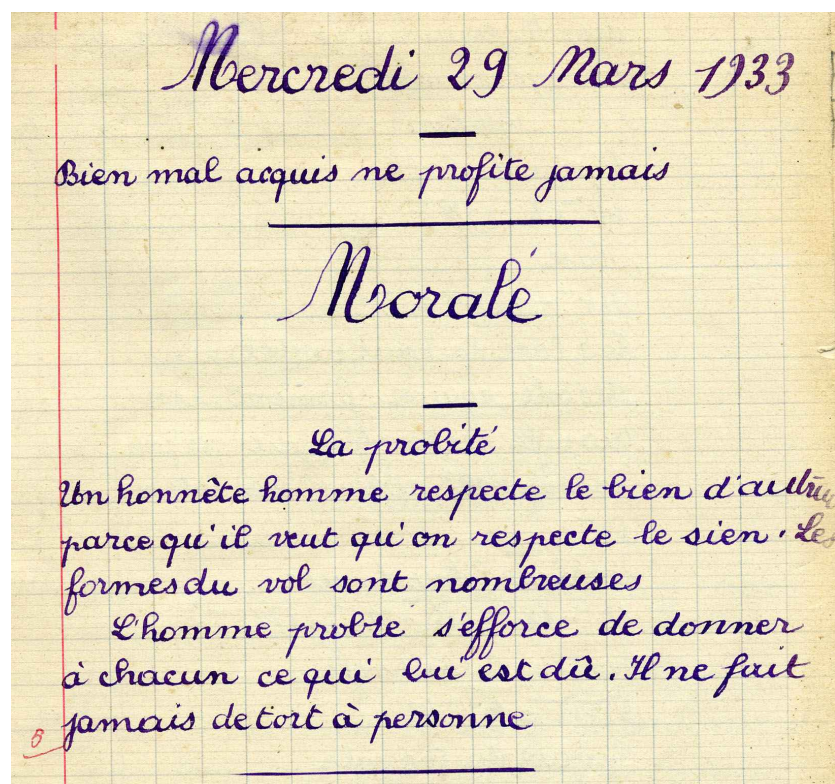 Mercredi 29 Mars 1933
Bien mal acquis ne profite jamais
Moralé
La probité
Un honnête homme respecte le bien d'autrui
parce qu'il veut qu'on respecte le sien. Les
formes du vol sont nombreuses
L'homme probre s'efforce de donner
à chacun ce qui lui est dû. Il ne fait
jamais de tort à personne
8